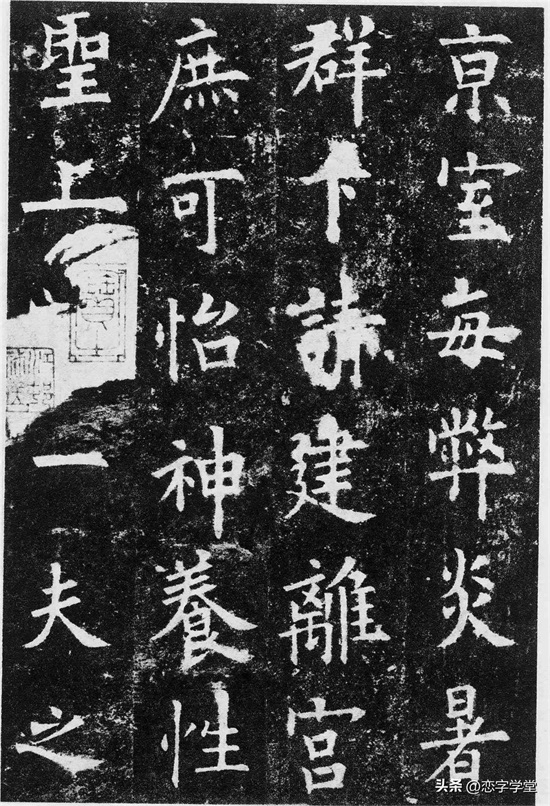 京室每弊炎暑
群下請建離宮
庶可怡神養性
聖上
一夫之
头条 @恋字学堂